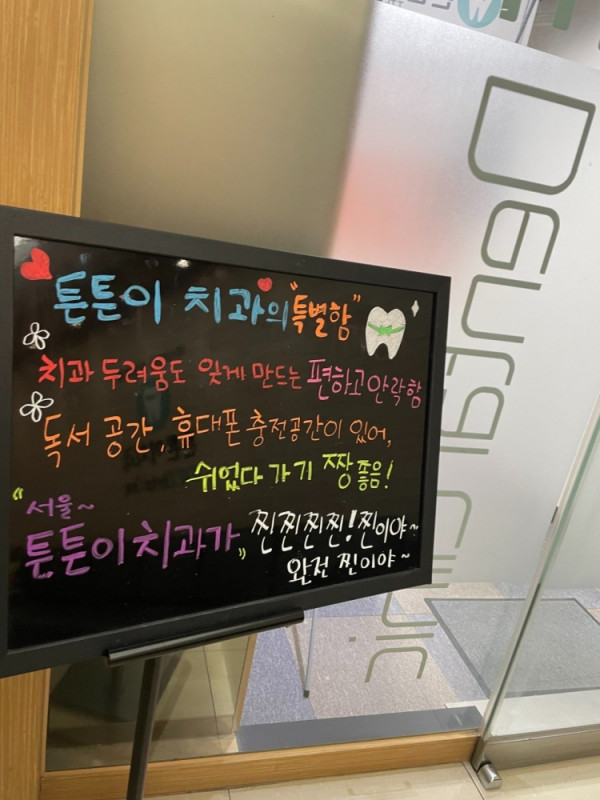 튼튼이 치과의 "특별함"
치과 두려움도 잊게 만드는 편하고 안락함
독서 공간, 휴대폰 충전공간이 있어,
쉬었다 가기 짱 좋음!
"서울~
튼튼이 치과가" 찐찐찐찐!찐이야~
완전 찐이야~
Dental clinic